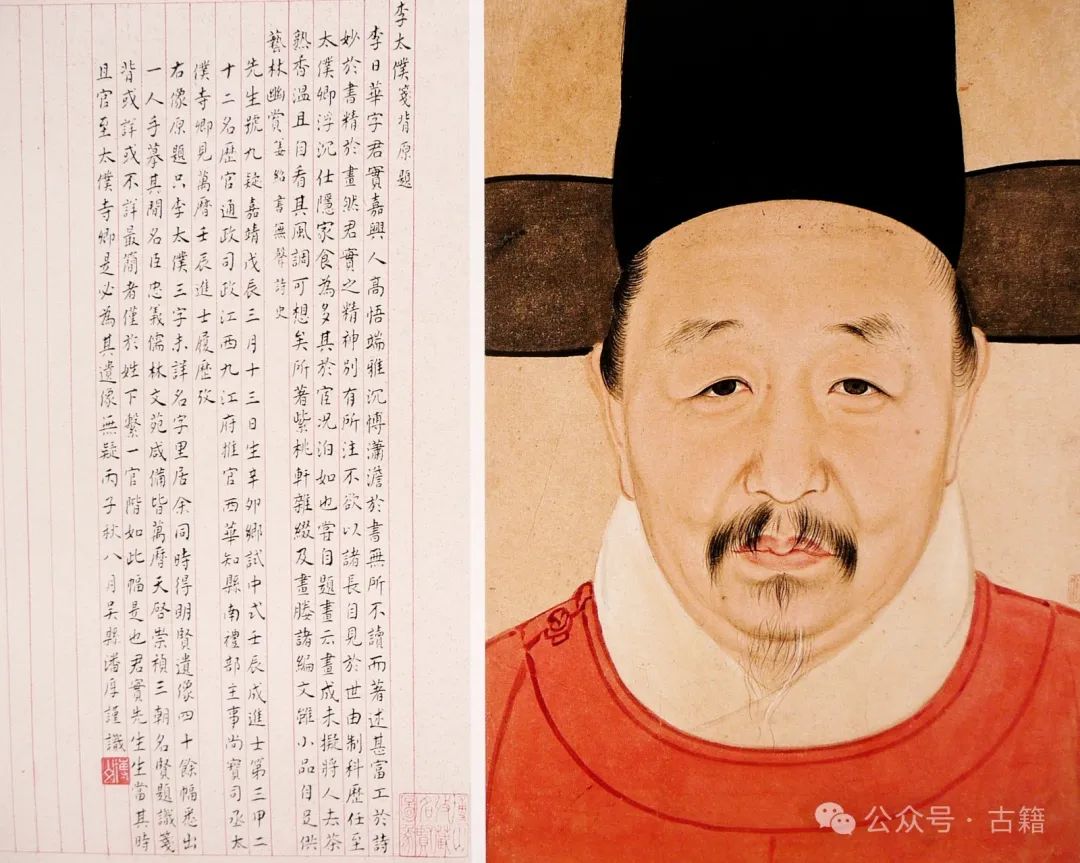 李太僕箋背原題
李日華字君實嘉興人高悟端雅沉博瀟澹於書無所不讀而著述甚富工於詩
妙於書精於畫然君實之精神別有所注不欲以諸長自見於世由制科歷任至
太僕卿浮沉仕隱家食為多其於宦況泊如也嘗自題畫云畫成未擬將人去茶
熟香溫且自看其風調可想矣所著紫桃軒雜綴及畫媵諸編文雖小品自足供
藝林幽賞姜紹書無聲詩史
先生號九疑嘉靖戊辰三月十三日生辛卯鄉試中式壬辰成進士第三甲二
十二名歷官通政司政江西九江府推官西華知縣南禮部主事尚寶司丞太
僕寺卿見萬曆壬辰進士履歷攷
右像原題只李太僕三字未詳名字里居余同時得明賢遺像四十餘幅悉出
一人手摹其間名臣忠義儒林文苑咸備皆萬曆天啓崇禎三朝名賢題識箋
背或詳或不詳最簡者僅於姓下繫一官階如此幅是也君實先生生當其時
且官至太僕寺卿是必為其遺像無疑丙子秋八月吳縣潘厚謹識
公众号·古籍